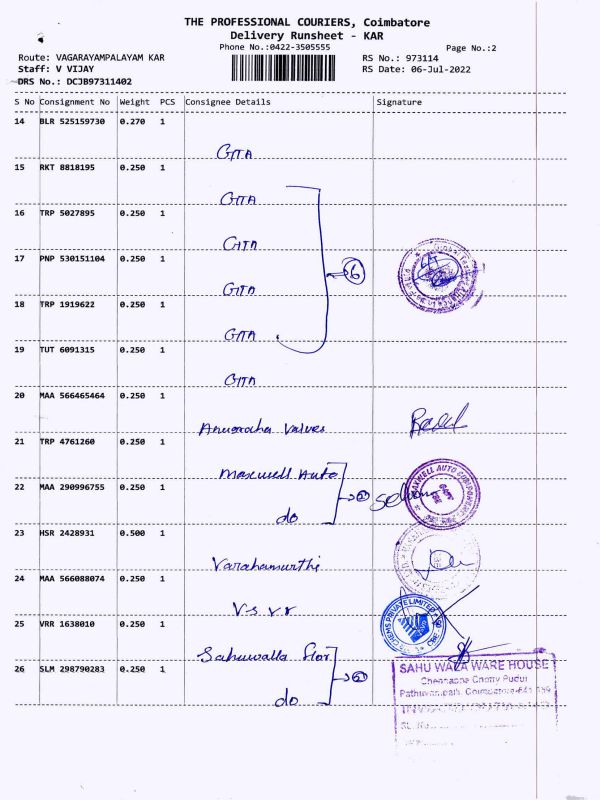 THE PROFESSIONAL COURIERS, Coimbatore
Delivery Runsheet - KAR
Phone No.:0422-3505555
Page No.:2
Route: VAGARAYAMPALAYAM KAR
RS No.: 973114
Staff: V VIJAY
RS Date: 06-Jul-2022
DRS No.: DCJB97311402
S No Consignment No Weight PCS Consignee Details Signature
14 BLR 525159730 0.270 1
GITA
15 RKT 8818195 0.250 1
GITA
16 TRP 5027895 0.250 1
GITA
17 PNP 530151104 0.250 1
6
GITA
18 TRP 1919622 0.250 1
GITA
19 TUT 6091315 0.250 1
GITA
20 MAA 566465464 0.250 1
Anuradha Valves
21 TRP 4761260 0.250 1
Maxwell Auto
22 MAA 290996755 0.250 1
do
MAXWELL AUTO COMPONENTS
23 HSR 2428931 0.500 1
Varahamurthi
24 MAA 566088074 0.250 1
V S V R
PRIVATE LIMITED
25 VRR 1638010 0.250 1
Sahuwalla
26 SLM 298790283 0.250 1
do
SAHU WALA WARE HOUSE
Chennappa Chetty Pudur
Coimbatore-641